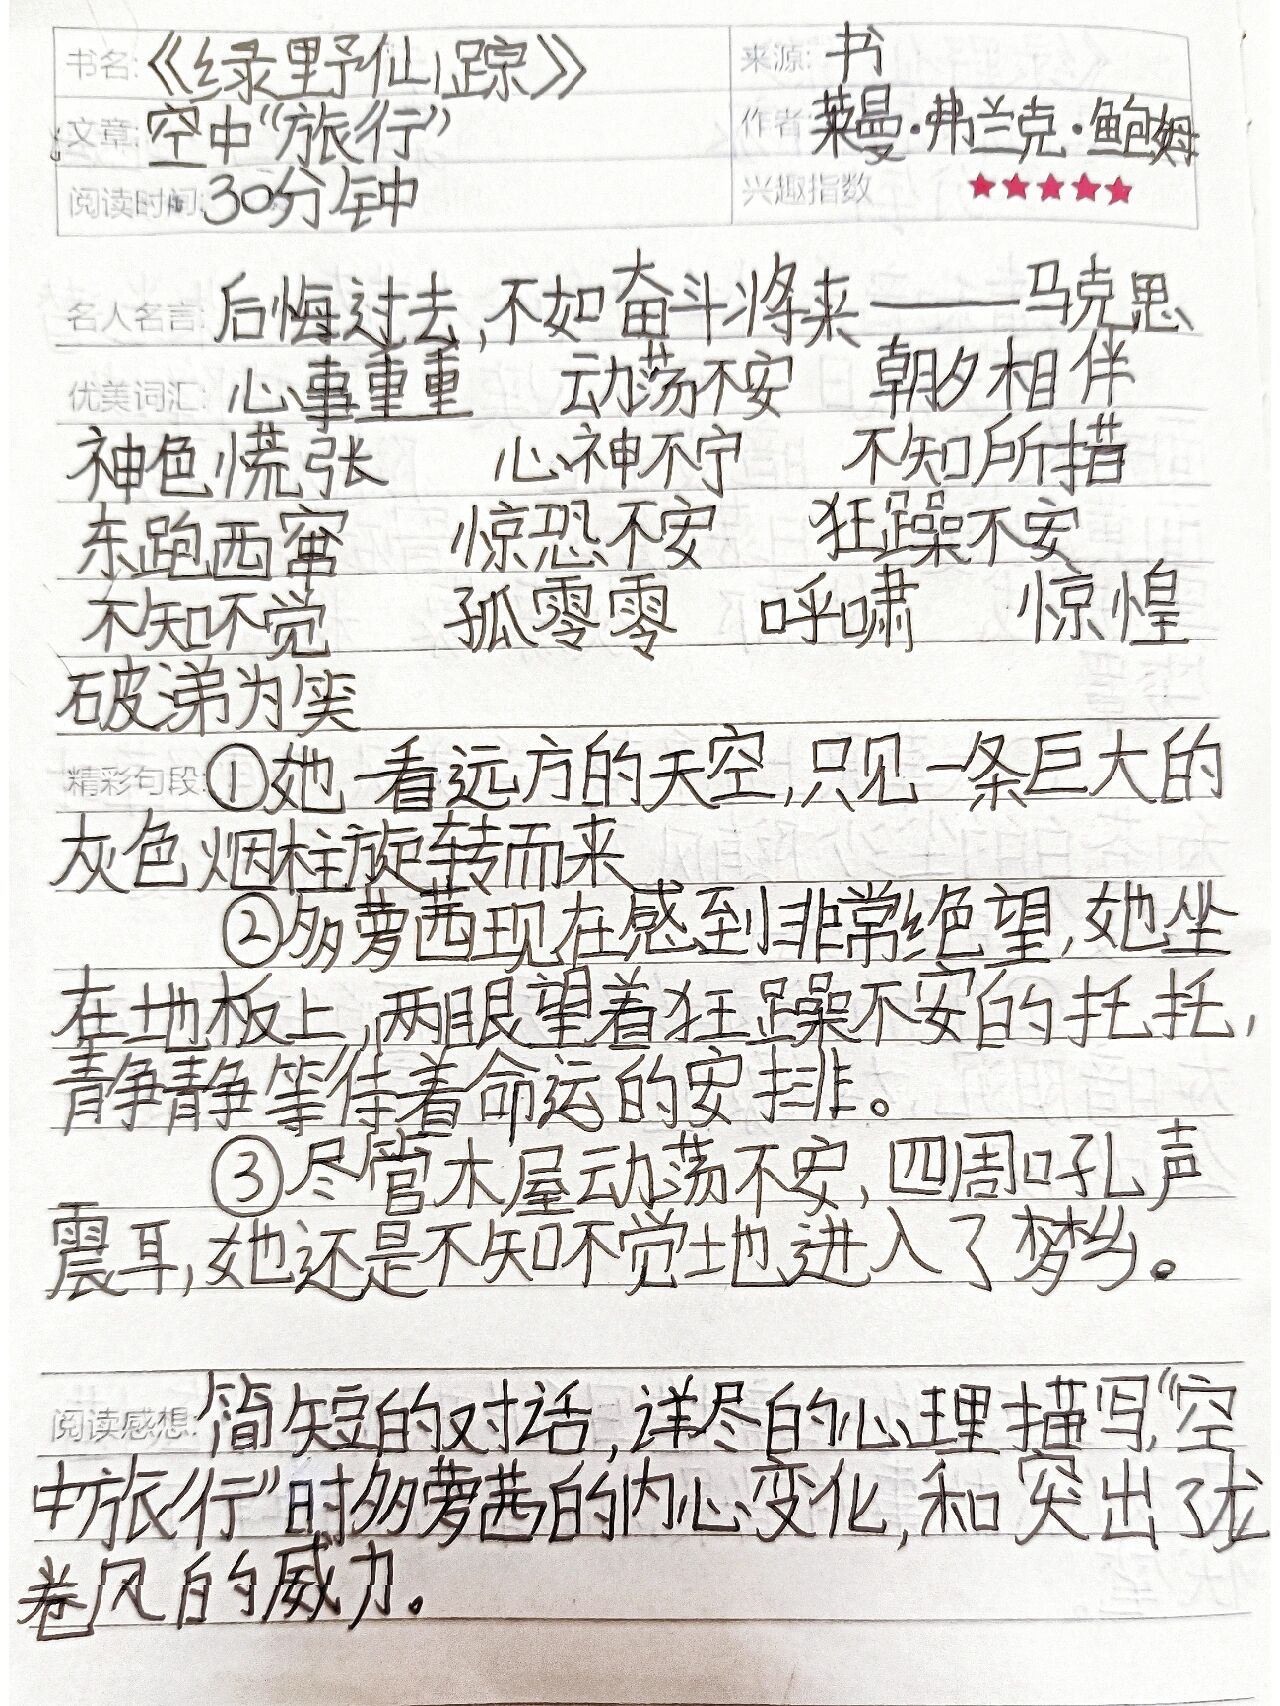 书名:《绿野仙踪》 来源: 书
文章: 空中“旅行” 作者: 莱曼·弗兰克·鲍姆
阅读时间: 30分钟 兴趣指数 ★★★★★
名人名言: 后悔过去,不如奋斗将来——马克思
优美词汇: 心事重重 动荡不安 朝夕相伴
神色慌张 心神不宁 不知所措
东跑西窜 惊恐不安 狂躁不安
不知不觉 孤零零 呼啸 惊惶
破涕为笑
精彩句段: ①她一看远方的天空,只见一条巨大的
灰色烟柱旋转而来
②多萝茜现在感到非常绝望,她坐
在地板上,两眼望着狂躁不安的托托,
静静等待着命运的安排。
③尽管木屋动荡不安,四周吼声
震耳,她还是不知不觉地进入了梦乡。
阅读感想: 简短的对话,详尽的心理描写,“空
中旅行”时多萝茜的内心变化,和突出了龙
卷风的威力。